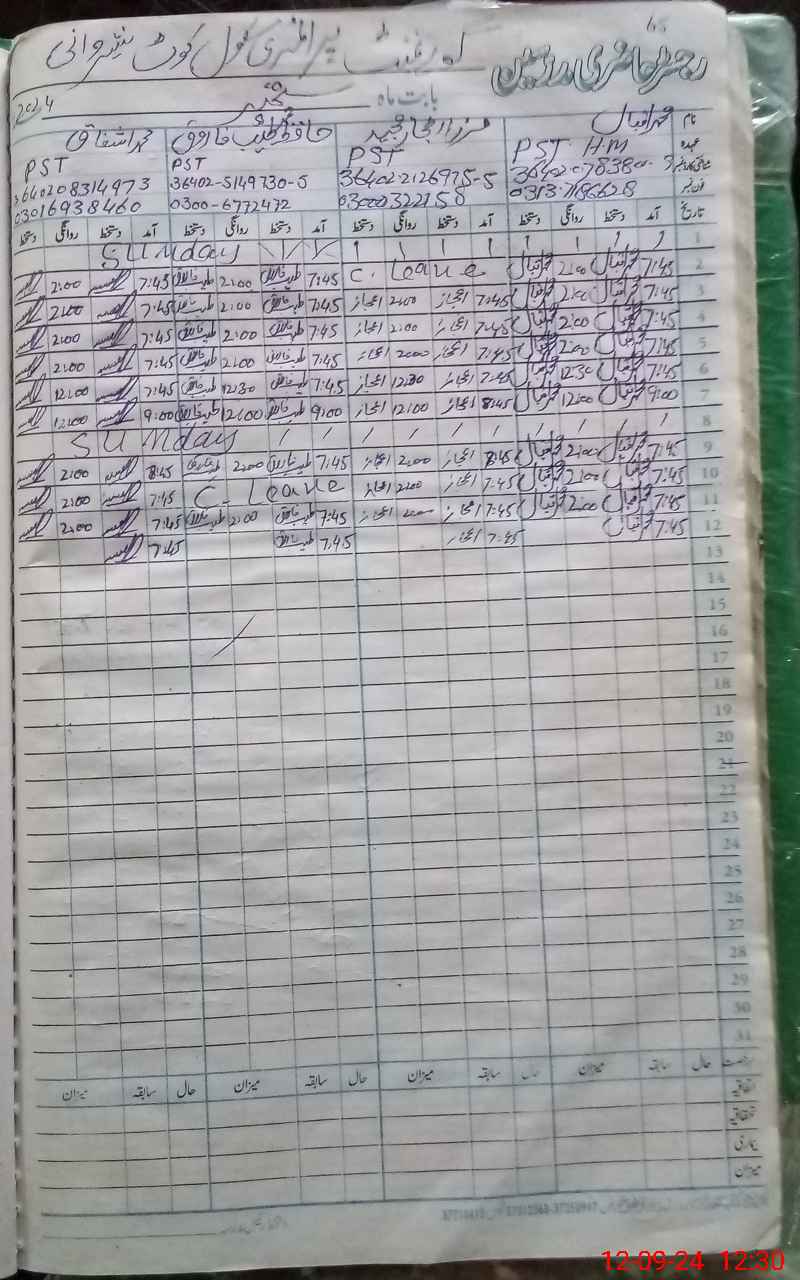 رجسٹر حاضری مدرسین گورنمنٹ پرائمری سکول کوٹ شیروانی
بابت ماہ ستمبر 2024
نام محمد اقبال مرزا اعجاز حافظ طیب فاروق محمد اشفاق
عہدہ PST H.M PST PST PST
36402-2126975-5 36402-5149730-5 3640208314973
فون نمبر 0313-7186628 03000322150 0300-6772472 03016938460
تاریخ آمد دستخط روانگی دستخط آمد دستخط روانگی دستخط آمد دستخط روانگی دستخط آمد دستخط روانگی دستخط
1 SUNday
2 7:45 محمد اقبال 2:00 محمد اقبال C. Leave 7:45 طیب فاروق 2:00 طیب فاروق 7:45 2:00
3 7:45 محمد اقبال 2:00 محمد اقبال 7:45 اعجاز 2:00 اعجاز 7:45 طیب فاروق 2:00 طیب فاروق 7:45 2:00
4 7:45 محمد اقبال 2:00 محمد اقبال 7:45 اعجاز 2:00 اعجاز 7:45 طیب فاروق 2:00 طیب فاروق 7:45 2:00
5 7:45 محمد اقبال 2:00 محمد اقبال 7:45 اعجاز 2:00 اعجاز 7:45 طیب فاروق 2:00 طیب فاروق 7:45 2:00
6 7:45 محمد اقبال 12:30 محمد اقبال 7:45 اعجاز 12:30 اعجاز 7:45 طیب فاروق 12:30 طیب فاروق 7:45 12:00
7 9:00 محمد اقبال 12:00 محمد اقبال 8:45 اعجاز 12:00 اعجاز 9:00 طیب فاروق 12:00 طیب فاروق 9:00 12:00
8 SUNday
9 7:45 محمد اقبال 2:00 محمد اقبال 7:45 اعجاز 2:00 اعجاز 7:45 طیب فاروق 2:00 طیب فاروق 8:45 2:00
10 7:45 محمد اقبال 2:00 محمد اقبال 7:45 اعجاز 2:00 اعجاز C. Leave 7:45 2:00
11 7:45 محمد اقبال 2:00 محمد اقبال 7:45 اعجاز 2:00 اعجاز 7:45 طیب فاروق 2:00 طیب فاروق 7:45 2:00
12 7:45 محمد اقبال 7:45 اعجاز 7:45 طیب فاروق 7:45
13
14
15
16
17
18
19
20
21
22
23
24
25
26
27
28
29
30
31
رخصت حال سابقہ میزان حال سابقہ میزان حال سابقہ میزان حال سابقہ میزان
اتفاقیہ
بیماری
میزان
12-09-24 12:30